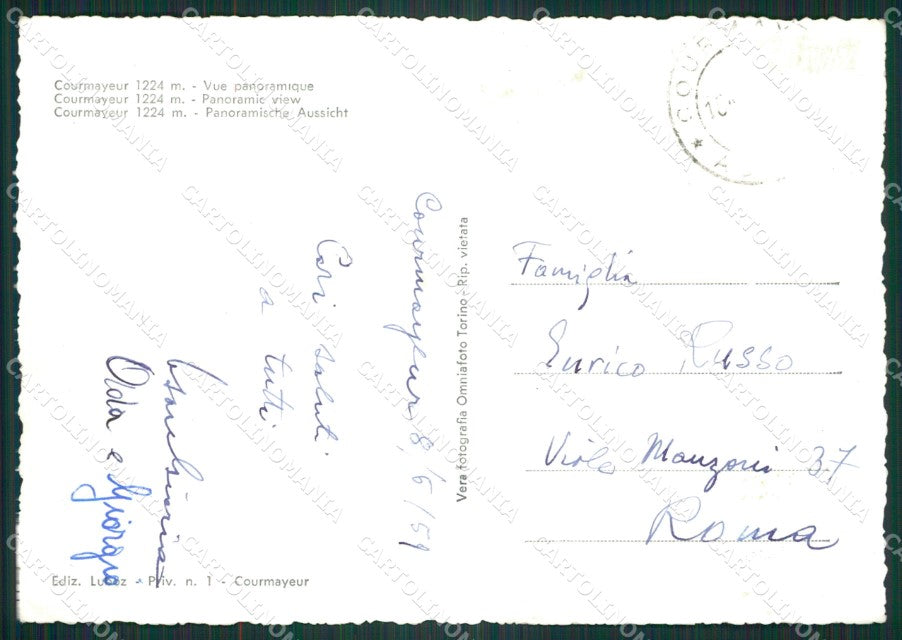 Courmayeur 1224 m. - Vue panoramique
Courmayeur 1224 m. - Panoramic view
Courmayeur 1224 m. - Panoramische Aussicht
Courmayeur 8/6/59
Cari saluti
a tutti
Alda e
Giorgio
Vera fotografia Omniafoto Torino - Rip. vietata
Famiglia
Enrico Russo
Viale Manzoni 37
Roma
Ediz. - Priv. n. 1 - Courmayeur
CARTOLINOMANIA